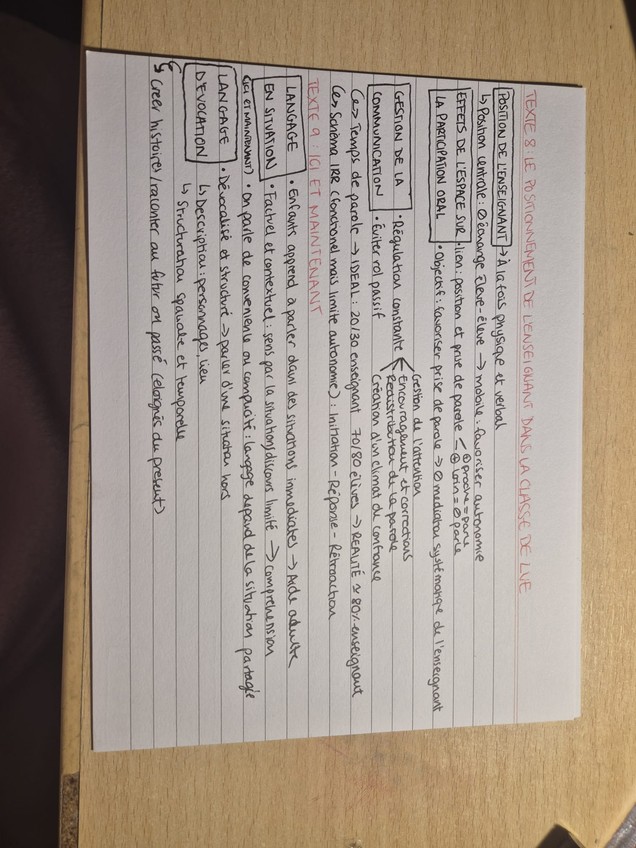 TEXTE 8 : LE POSITIONNEMENT DE L'ENSEIGNANT DANS LA CLASSE DE LVE
POSITION DE L'ENSEIGNANT → À la fois physique et verbal
↳ Position centrale : ∅ échange élève-élève → mobile : favoriser autonomie
EFFETS DE L'ESPACE SUR LA PARTICIPATION ORAL
• lien : position et prise de parole
⊕ proche = parle
⊕ loin = ∅ parle
• Objectif : favoriser prise de parole → ∅ mediation systématique de l'enseignant
GESTION DE LA COMMUNICATION
• Régulation constante
Gestion de l'attention
Encouragement et corrections
Redistribution de la parole
• Éviter rol passif
Création d'un climat de confiance
↳ Temps de parole → IDEAL : 20/30 enseignant 70/80 élèves → REALITÉ ≈ 80% enseignant
↳ Schéma IRR (fonctionel mais limite autonomie) : Initiation - Réponse - Rétroaction
TEXTE 9 : ICI ET MAINTENANT
LANGAGE EN SITUATION
(ICI ET MAINTENANT)
• Enfants apprend à parler dans des situations immediates → Aide adulte
• Factuel et contextuel : sens par la situation/discours limité → Comprehension
• on parle de connivence ou complicité : langage depend de la situation partagée
LANGAGE D'EVOCATION
• Dévocalisé et structuré → parler d'une situation hors
↳ Description : personnages, lieu
↳ Structuration spatiale et temporelle
↳ Créer histoires / raconter au futur ou passé (eloignés du present)